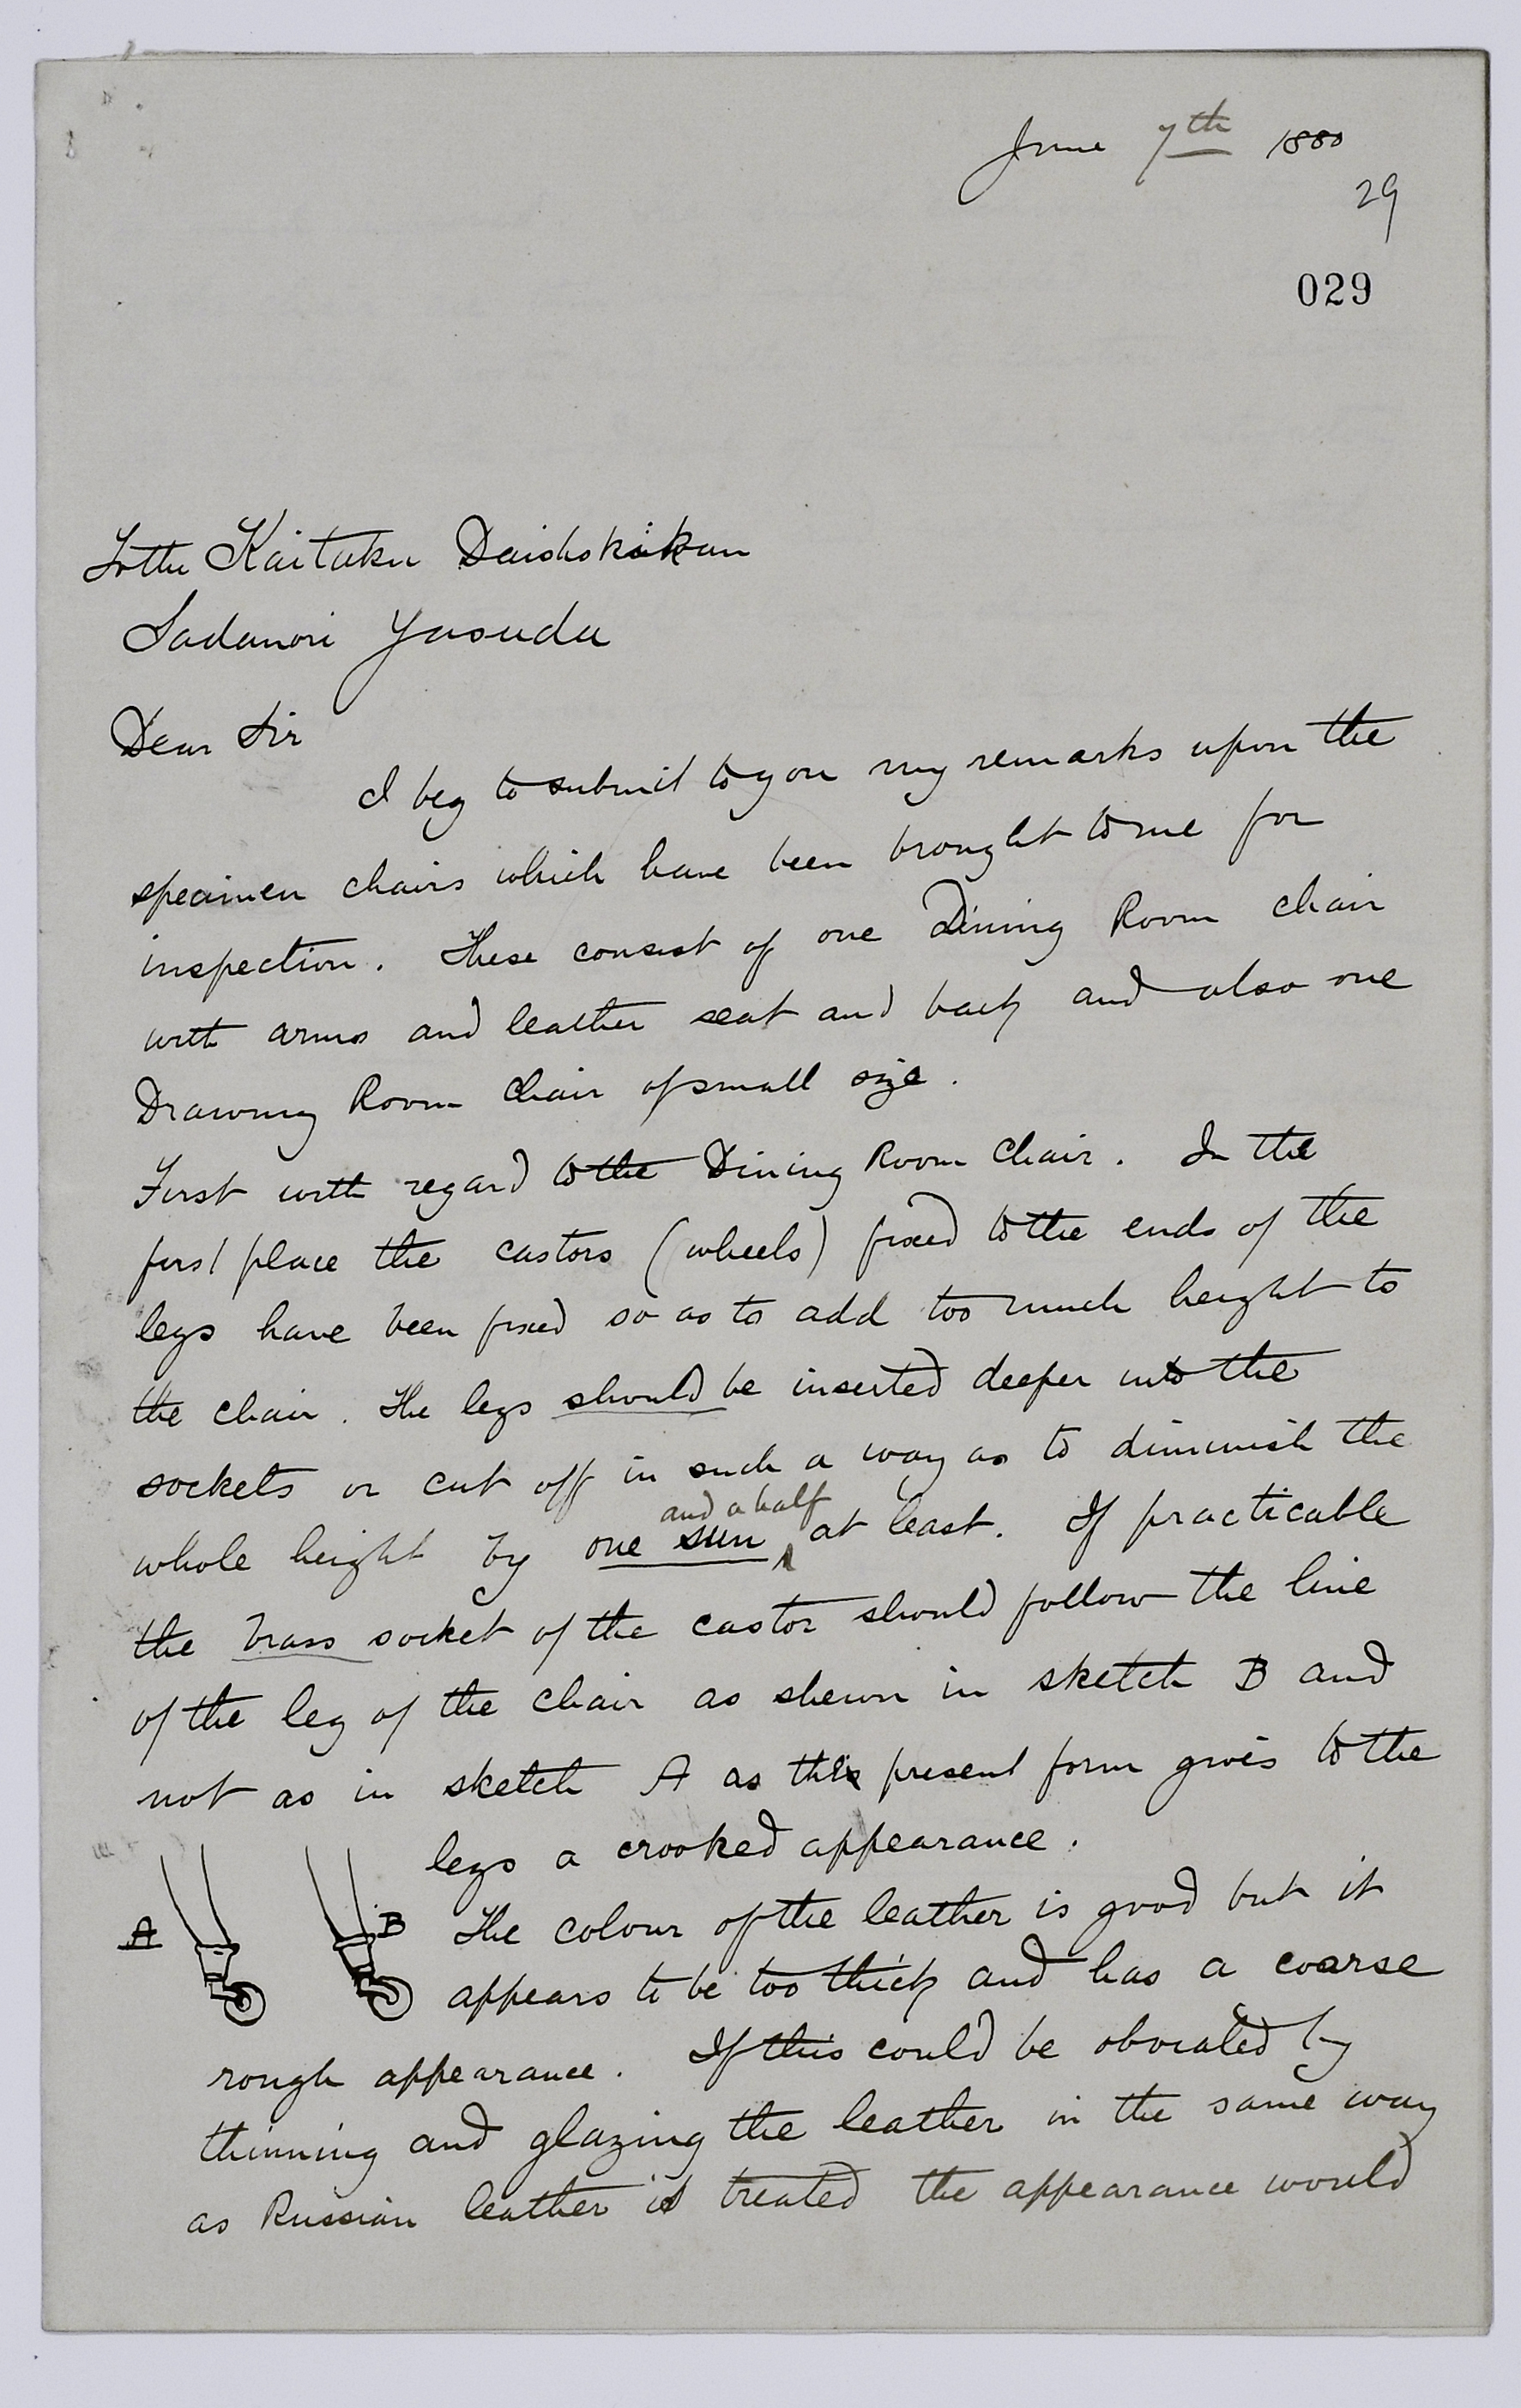 June 7th 1880
29
029
To the Kaitaku Daishokikan
Sadanori Yasuda
Dear Sir
I beg to submit to you my remarks upon the
specimen chairs which have been brought to me for
inspection. These consist of one Dining Room chair
with arms and leather seat and back and also one
Drawing Room Chair of small size.
First with regard to the Dining Room Chair. In the
first place the castors (wheels) fixed to the ends of the
legs have been fixed so as to add too much height to
the chair. The legs should be inserted deeper into the
sockets or cut off in such a way as to diminish the
and a half
whole height by one sun at least. If practicable
the brass socket of the castor should follow the line
of the leg of the chair as shewn in sketch B and
not as in sketch A as this present form gives to the
legs a crooked appearance.
A
B
The colour of the leather is good but it
appears to be too thick and has a coarse
rough appearance. If this could be obviated by
thinning and glazing the leather in the same way
as Russian leather is treated the appearance would